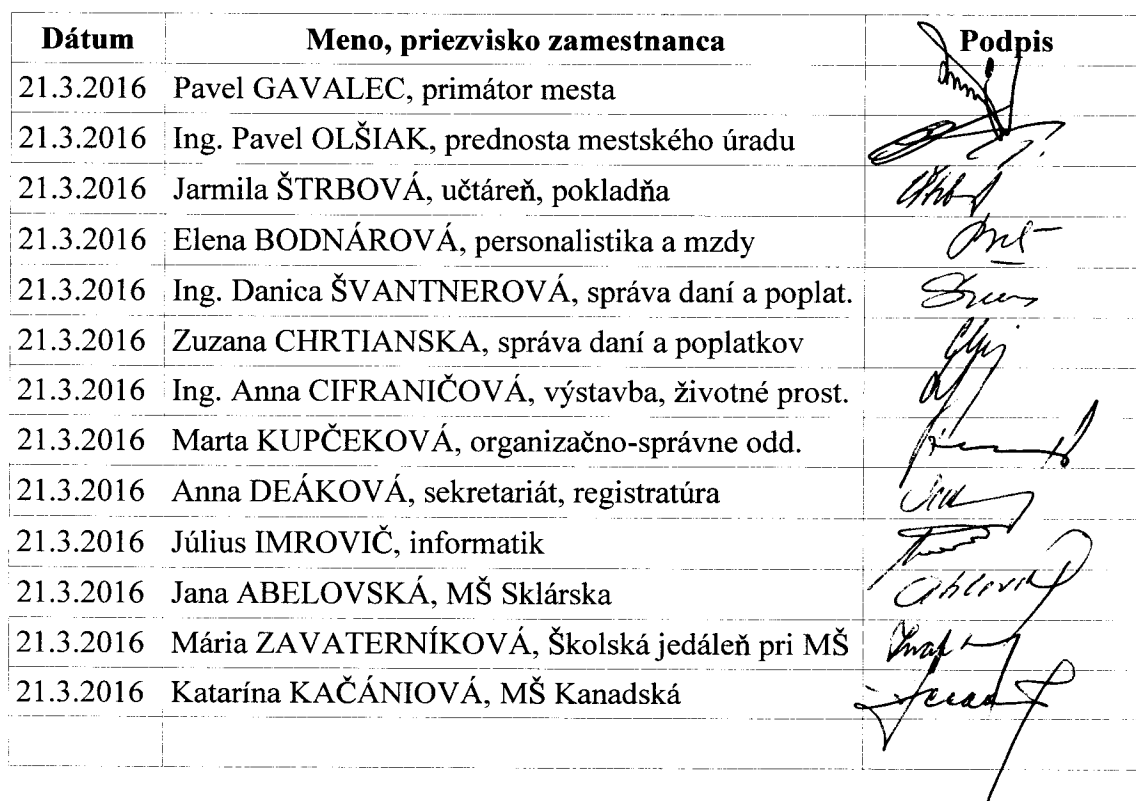 Dátum Meno, priezvisko zamestnanca Podpis
21.3.2016 Pavel GAVALEC, primátor mesta
21.3.2016 Ing. Pavel OLŠIAK, prednosta mestského úradu
21.3.2016 Jarmila ŠTRBOVÁ, učtáreň, pokladňa
21.3.2016 Elena BODNÁROVÁ, personalistika a mzdy
21.3.2016 Ing. Danica ŠVANTNEROVÁ, správa daní a poplat.
21.3.2016 Zuzana CHRTIANSKA, správa daní a poplatkov
21.3.2016 Ing. Anna CIFRANIČOVÁ, výstavba, životné prost.
21.3.2016 Marta KUPČEKOVÁ, organizačno-správne odd.
21.3.2016 Anna DEÁKOVÁ, sekretariát, registratúra
21.3.2016 Július IMROVIČ, informatik
21.3.2016 Jana ABELOVSKÁ, MŠ Sklárska
21.3.2016 Mária ZAVATERNÍKOVÁ, Školská jedáleň pri MŠ
21.3.2016 Katarína KAČÁNIOVÁ, MŠ Kanadská